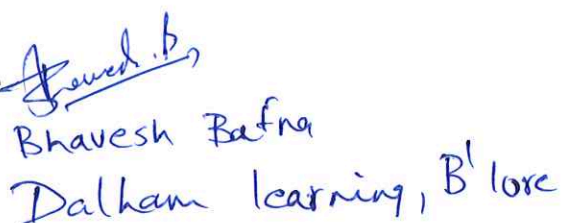 Bhavesh Bafna
Dalham learning, B'lore